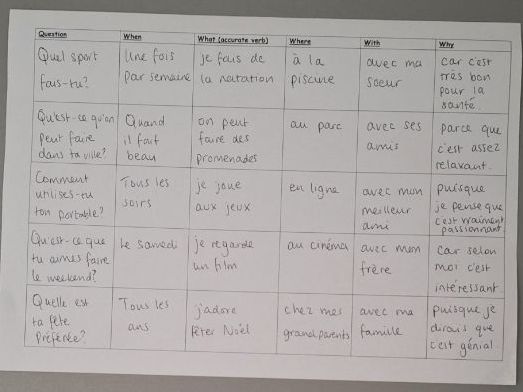 Question When What (accurate verb) Where With Why
Quel sport
fais-tu?
Une fois
par semaine
je fais de
la natation
à la
piscine
avec ma
soeur
car c'est
très bon
pour la
santé.
Qu'est-ce qu'on
peut faire
dans ta ville?
Quand
il fait
beau
on peut
faire des
promenades
au parc
avec ses
amis
parce que
c'est assez
relaxant.
Comment
utilises-tu
ton portable?
Tous les
soirs
je joue
aux jeux
en ligne
avec mon
meilleur
ami
puisque
je pense que
c'est vraiment
passionnant.
Qu'est-ce que
tu aimes faire
le weekend?
Le samedi
je regarde
un film
au cinéma
avec mon
frère
car selon
moi c'est
intéressant.
Quelle est
ta fête
préférée?
Tous les
ans
j'adore
fêter Noël
chez mes
grandparents
avec ma
famille
puisque je
dirais que
c'est génial.